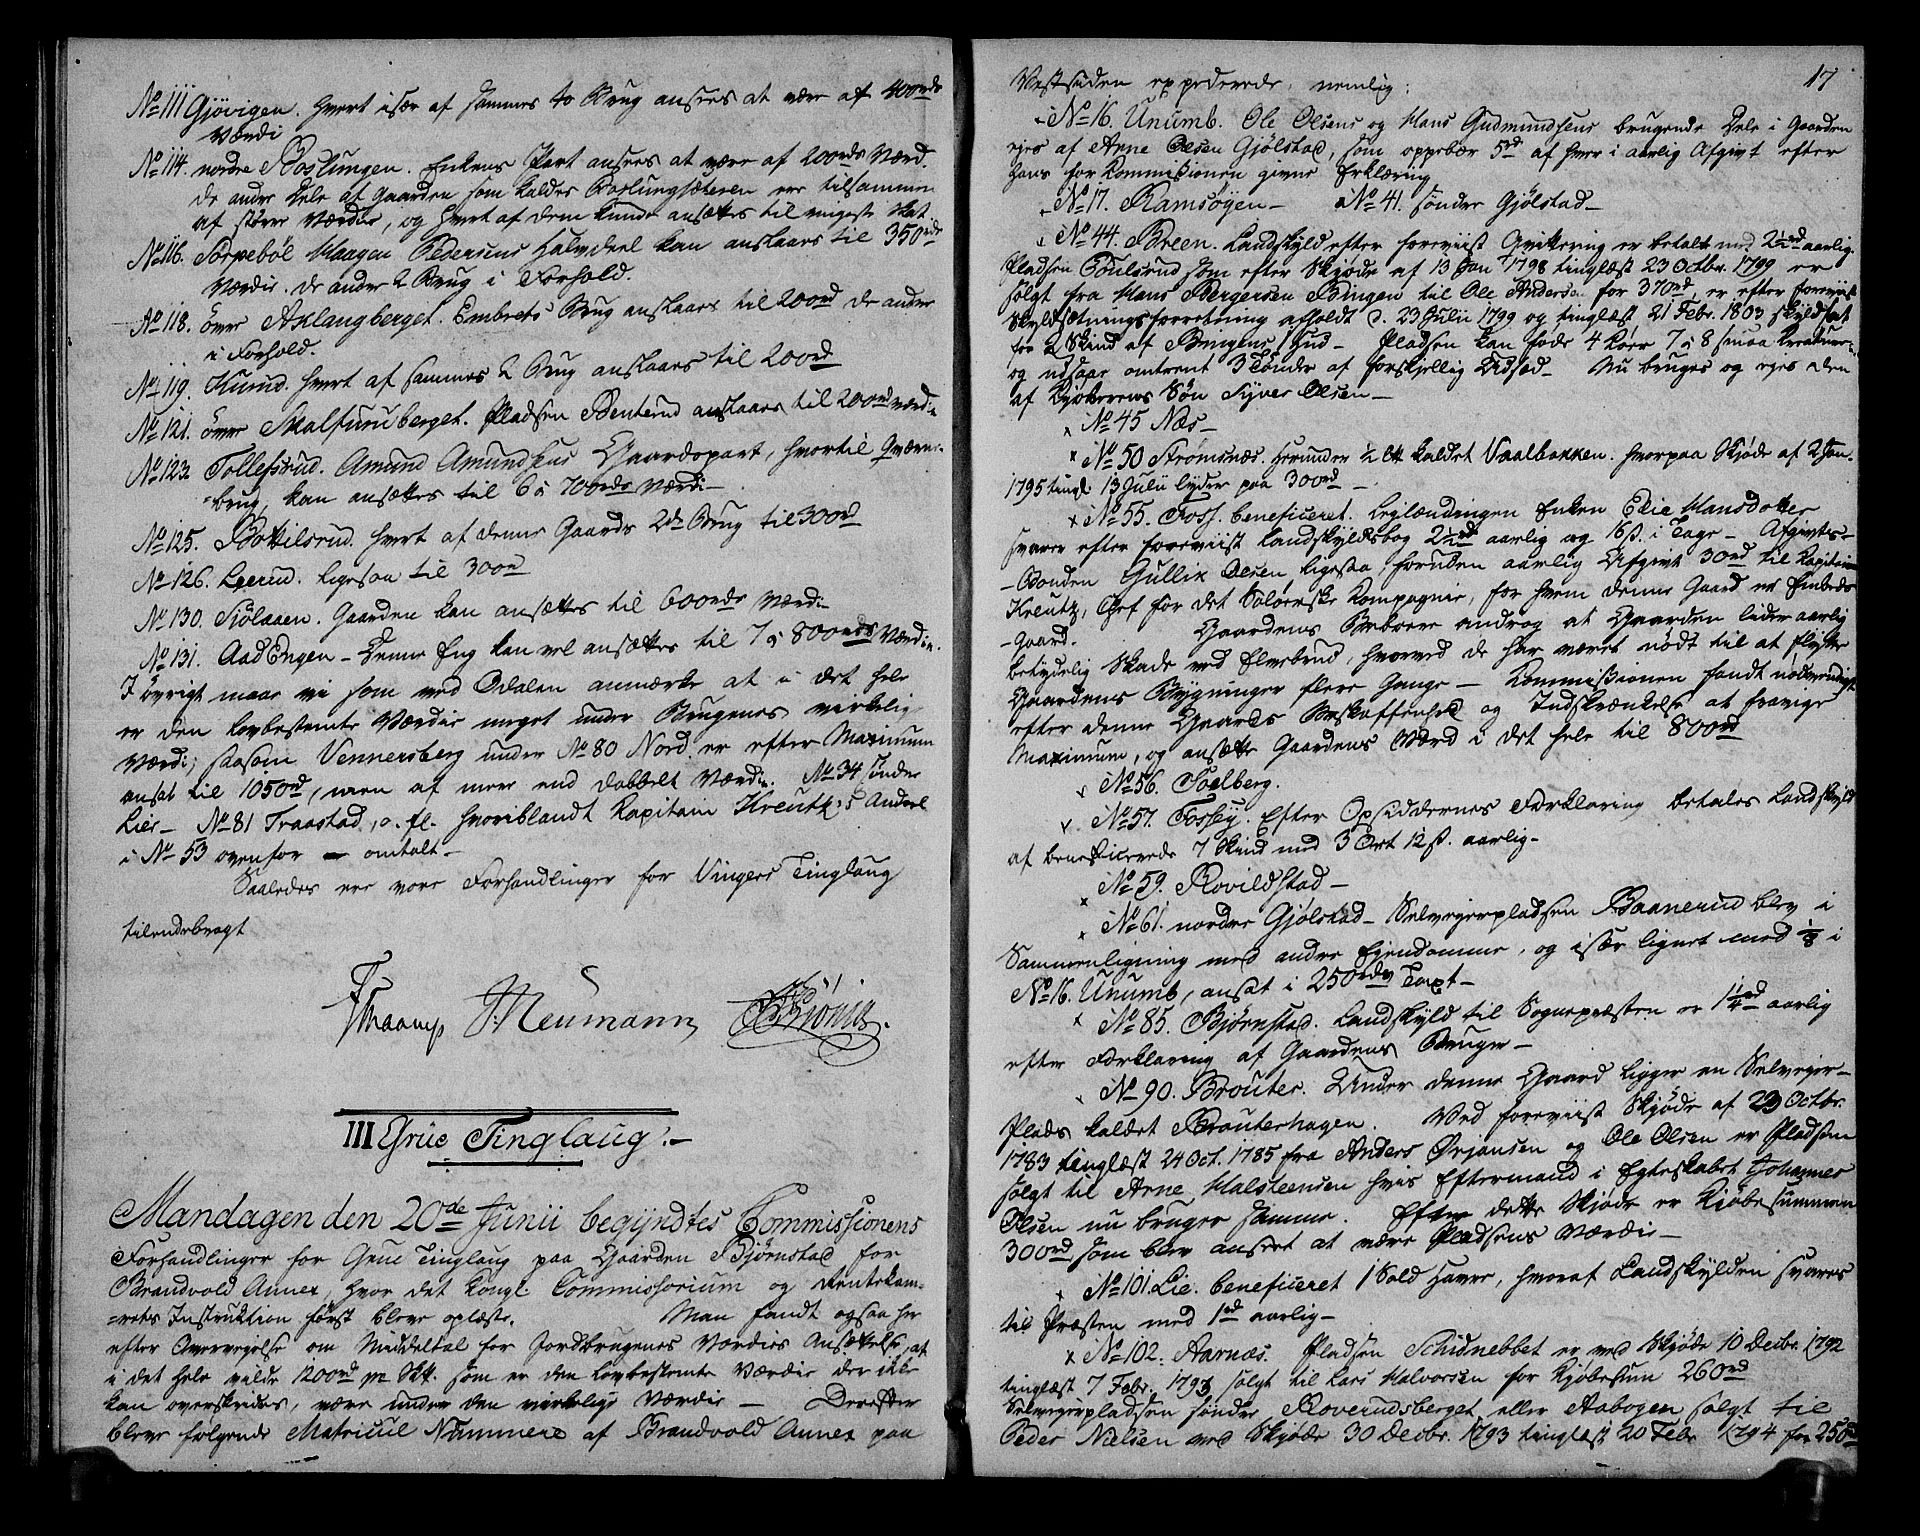 No 111 Gjövigen. hvert især af sammes to Brug ansees at være af 400rds
Værdi
No 114. nordre Roslungen. Enkens Part ansees at være af 200rds Værd.
de andre Dele af Gaarden som kaldes Roslungsæteren ere tilsammen
af större Værdie, og hvert af dem kunde ansættes til nigeste Skat
No 116. Torpeböl Haagen Pedersens Halvdeel kan anslaaes til 350rds
Værdie. de andre 2 Brug i Forhold.
No 118. övre Aklangberget. Embrets Brug anslaaes til 200rd de andre
i Forhold.
No 119. Kurud. hvert af sammes 2 Brug anslaaes til 200rd
No 121. övre Skalfuruberget. Pladsen Benterud anslaaes til 200rd værdi
No 123. Tollefsrud. Amund Amundsens Gaardepart, hvortil Qværn-
brug, kan ansættes til 6 à 700rds Værdi -
No 125. Bottilsrud. hvert af denne Gaards 2de Brug til 300rd
No 126. Leerud. ligesaa til 300rd
No 130. Siölaaen. Gaarden kan ansættes til 600rds Værdi -
No 131. Aad Engen - Denne Eng kan vel ansættes til 7 à 800rds Værdie.
I övrigt maae vi som ved Odalen anmærke at i det hele
er den lovbestemte Værdie meget under Brugenes virkelig
Værdi; saasom Vennersberg under No 80 Nord er efter Maximum
ansat til 1050rd, men af meer end dobbelt Værdie. No 34 söndre
Lier - No 81 Traastad, o. fl. hvoriblandt Kapitain Kreutz's Andeel
i No 53 ovenfor - omtalt -
Saaledes ere vore Forhandlinger for Vingers Tinglaug
tilendebragt
Thaarup J. Neumann
III Grue Tinglaug. -
Mandagen den 20de Junii begyndtes Commissionens
Forhandlinger for Grue Tinglaug paa Gaarden Bjørnstad for
Brandvold Annex, hvor det Kongl. Commissorium og Rentekam-
=rets Instruktion först bleve oplæste. Man fandt ogsaa her
efter Overveielse om Middeltal for Jordbrugenes Værdies Ansættelse, at
i det hele vilde 1200rd pr Skk. som er den lovbestemte Værdie der ikke
kan overskrides, være under den virkelige Værdie - Derefter
bleve fölgende Matricul Nummere af Brandvold Annex paa
17
Vestsiden expederede, nemlig:
No 16. Unumb. Ole Olsens og Hans Gudmundsens brugende Dele i Gaarden
eies af Arne Olsen Gjölstad, som oppebær 5rd af hver i aarlig Afgivt efter
hans for Kommissionen givne Erklæring
No 17. Ramsöyen - No 41. söndre Gjölstad -
No 44. Breen. Landskyld efter foreviist Qvittering er betalt med 2½rd aarlig.
Pladsen Coulsrud som efter Skjöde af 13 Jan 1798 tinglæst 23 Octbr. 1799 er
solgt fra Hans Bergersen Bingen til Ole Anderse. for 370rd, er efter foreviist
Skyldsætningsforretning afholdt d. 23 Julii 1799 og tinglæst 21 Febr. 1803 skyldsat
for 2 Skind af Bingens Gud - Pladsen kan föde 4 Köer 7 à 8 smaa Kreature
og udsaae omtrent 3 Tönder af forskjellig Udsæd - Nu bruges og eies den
af Kjöberens Sön Syver Olsen -
No 45 Næs -
No 50 Strömsnæs. herunder ½ kaldet Vaalbakken. hvorpaa Skjöde af 2 Jan.
1795 tingl. 13 Julii lyder paa 300rd -
No 55. Foss. beneficeret. Leglændingen Enken Elie Hansdotter
svarer efter foreviist Landskyldsbog 2½rd aarlig og 16s. i Tage - Afgivts-
- Bonden Gullik Olsen ligesaa foruden aarlig Afgivt 30rd til Kapitain
Kreutz, Chef for det Solörske Kompagnie, for hvem denne Gaard er Embeds
- Gaard. Gaardens Beboere androg at Gaarden lider aarlig
betydelig Skade ved Elvebrud, hvorved de har været nödt til at flytte
Gaardens Bygninger flere Gange - Kommissionen fandt nödvendigt
efter denne Gaards Beskaffenhed og Indskrænkelse at fravige
Maximum, og ansætte Gaardens Værd i det hele til 800rd
No 56. Toelberg.
No 57. Fossby. Efter Opsiddernes Forklaring betales Landskyld
af beneficerede 7 Skind med 3 Ort 12s. aarlig -
No 59. Rovildstad -
No 61. nordre Gjölstad - Selveierpladsen Baanerud blev i
Sammenligning med andre Eiendomme, og især lignet med ⅛ i
No 16. Unumb, ansat i 250rds Taxt -
No 85. Bjørnstad. Landskyld til Sognepræsten er 1¼rd aarlig
efter Forklaring af Gaardens Bruger -
No 90. Brouter. Under denne Gaard ligger en Selveier-
Plads kaldet Brouterhagen. Ved foreviist Skjöde af 23 Octbr.
1783 tinglæst 24 Oct. 1785 fra Anders Örjansen og Ole Olsen er Pladsen
solgt til Arne Halsteensen hvis Eftermand i Egteskabet Johannes
Olsen nu bruger samme. Efter dette Skjöde er Kjöbesummen
300rd, som blev anseet at være Pladsens Værdie -
No 101. Lie. beneficeret 1 Sold Havre, hvoraf Landskylden svares
til Præsten med 1rd aarlig -
No 102. Aarnæs. Pladsen Schidnebbet er med Skjöde 10 Decbr. 1792
tinglæst 7 Febr. 1793 solgt til Lars Halvorsen for Kjöbesum 260rd
Selveierpladsen söndre Roverudsberget eller Aabogen solgt til
Peder Nielsen med Skjöde 30 Decbr. 1793 tinglæst 20 Febr. 1794 for 250rd